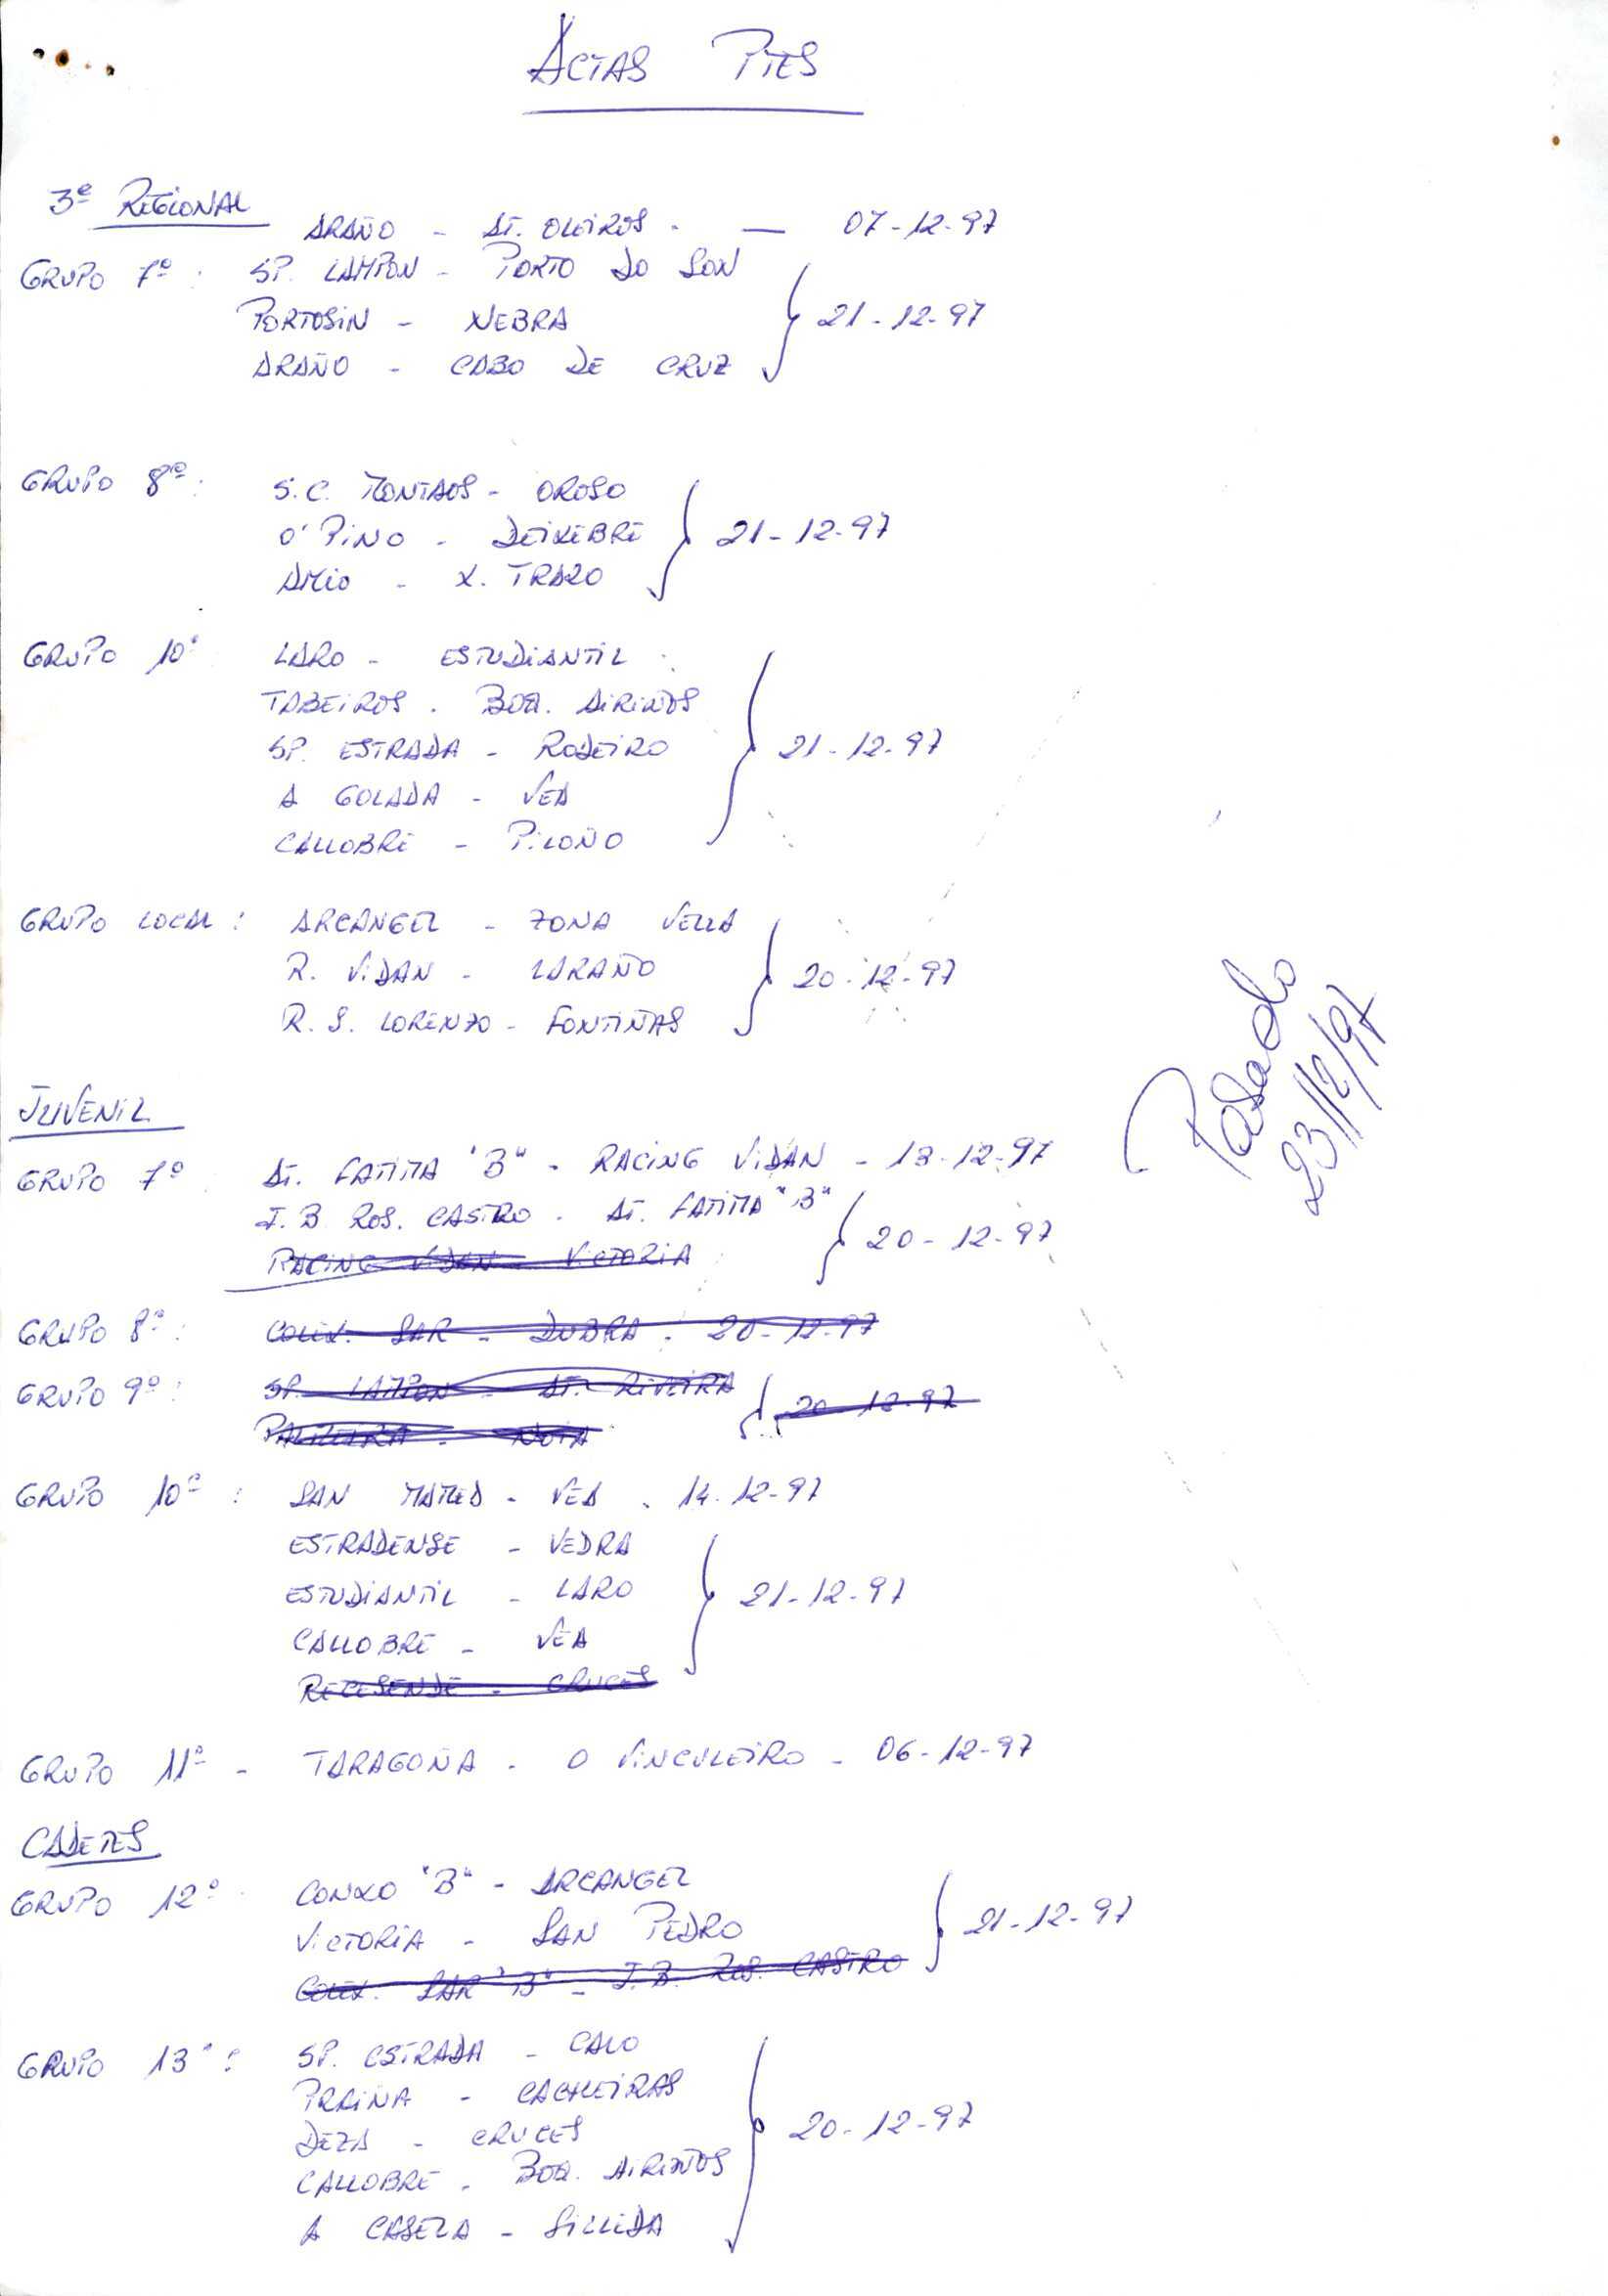 ACTAS PTES
3ª REGIONAL
ARAÑO - AT. OLEIROS - — 07-12-97
GRUPO 7º: SP. LAMPON - PORTO DO SON
PORTOSIN - NEBRA } 21-12-97
ARAÑO - CABO DE CRUZ
GRUPO 8º: S.C. MONTAOS - OROSO
O'PINO - DEIXEBRE } 21-12-97
AMIO - X. TRAZO
GRUPO 10º LARO - ESTUDIANTIL
TABEIROS - BOQ. AIRIÑOS
SP. ESTRADA - RODEIRO } 21-12-97
A GOLADA - VEA
CALLOBRE - PILOÑO
GRUPO LOCAL: ARCANGEL - ZONA VELLA
R. VIDAN - LARAÑO } 20-12-97
R. S. LORENZO - FONTIÑAS
Pasado
23/12/97
JUVENIL
GRUPO 7º AT. FATIMA "B" - RACING VIDAN - 13-12-97
I.B. ROS. CASTRO - AT. FATIMA "B" } 20-12-97
RACING VIDAN - VICTORIA
GRUPO 8º: COLEX. SAR - DUBRA - 20-12-97
GRUPO 9º: SP. LAMPON - AT. RIVEIRA } 20-12-97
PALMEIRA - NOIA
GRUPO 10º: SAN MAMED - VEA - 14-12-97
ESTRADENSE - VEDRA
ESTUDIANTIL - LARO } 21-12-97
CALLOBRE - VEA
RECESENDE - CRUCES
GRUPO 11º - TARAGOÑA - O VINCULEIRO - 06-12-97
CADETES
GRUPO 12º CONXO "B" - ARCANGEL
VICTORIA - SAN PEDRO } 21-12-97
COLEX. SAR "B" - I.B. ROS. CASTRO
GRUPO 13º: SP. ESTRADA - CALO
PRAIÑA - CACHEIRAS
DEZA - CRUCES } 20-12-97
CALLOBRE - BOQ. AIRIÑOS
A CASELA - SILLEDA